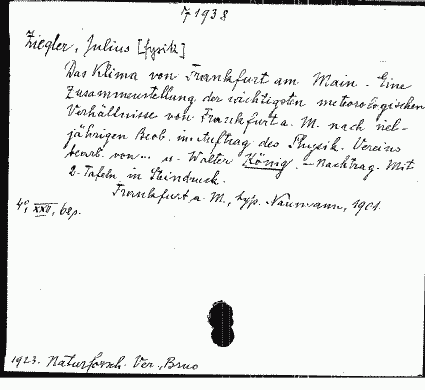 7 1938
Ziegler, Julius [fysik]
Das Klima von Frankfurt am Main. Eine
Zusammenstellung der wichtigsten meteorologischen
Verhältnisse von Frankfurt a. M. nach viel-
jährigen Beob. im Auftrag des Physik. Vereins
bearb. von ... u. Walter König. - Nachtrag. Mit
2 Tafeln in Steindruck.
Frankfurt a. M., typ. Naumann, 1901.
4°, XXV, 62 p.
1923. Naturforsch. Ver., Brno